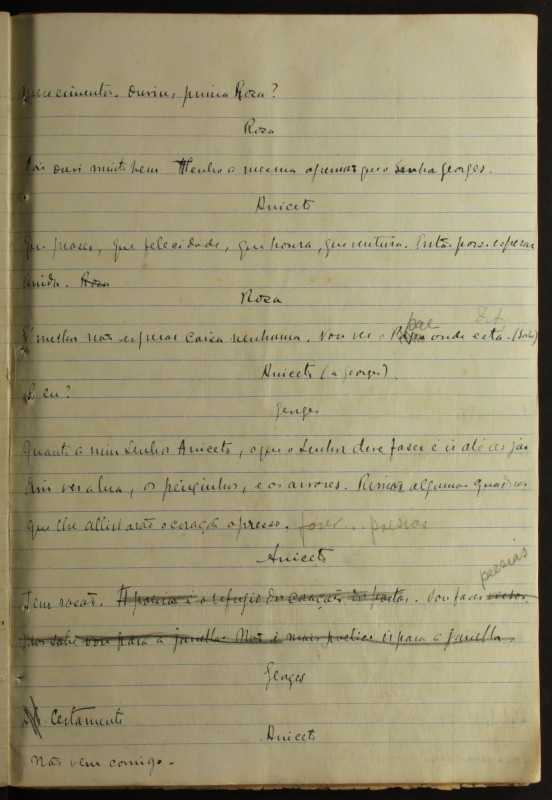 merecimentos. Ouviu, prima Rosa?
Rosa
Pois ouvi muito bem. Tenho a mesma opinião que o Senhor Georges.
Aniceto
Que praser, que felecidade, que honra, que ventura. Então posso esperar
ainda. Rosa
Rosa
E' melhor não esperar coisa nenhuma. Vou ver o pae onde está. (Sae)
Aniceto (a Georges).
E eu?
Georges
Quanto a mim Senhor Aniceto, o que o Senhor deve faser é ir até ao jar
dim ver a lua, os peixinhos, e as arvores. Rimar algumas quadras
que lhe alliviarão o coração oppresso. faser .. poesias
Aniceto
poesias
Tem rasão. A poesia é o refugio do coração dos poetas. Vou faser versos.
sabe vou para a janella. Não é mais poetico ir para a janella.
Georges
Certamente
Aniceto
Não vem comigo.